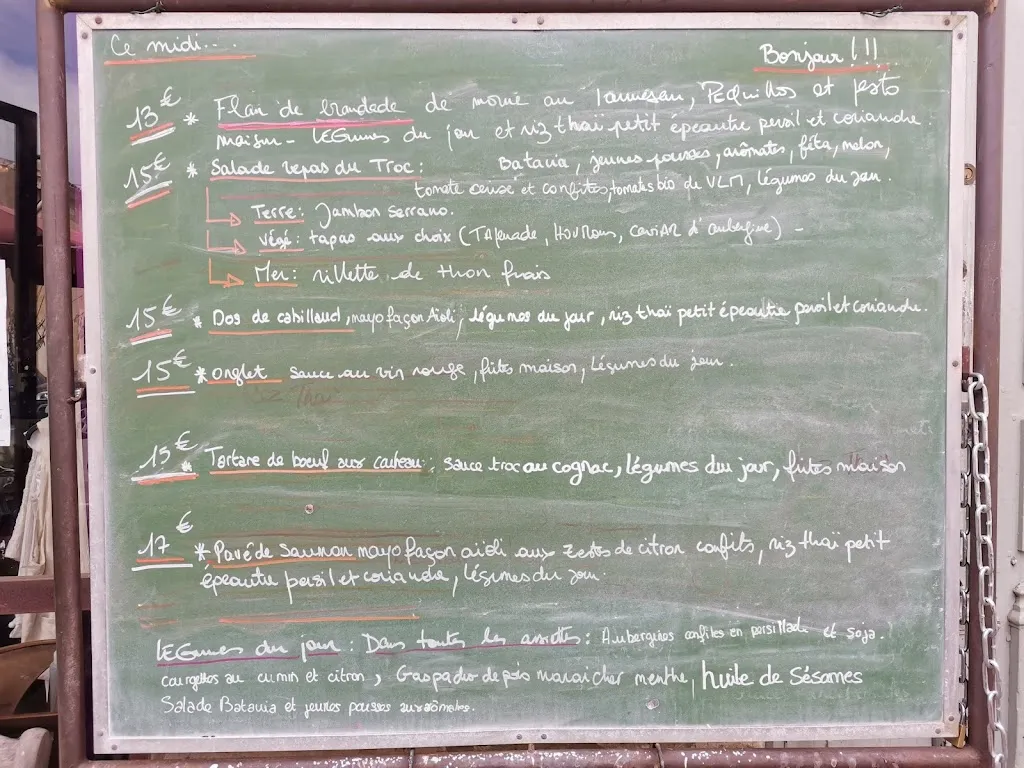 Ce midi....
Bonjour !!!
13€ * Flan de brandade de morue au parmesan, Pequillos et pesto
maison - LEGumes du jour et riz thaï petit épeautre persil et coriandre.
15€ * Salade repas du Troc : Batavia, jeunes pousses, arômates, fêta, melon,
tomate cerise et confites, tomates bio du VLM, légumes du jour.
Terre : Jambon Serrano.
Végé : tapas aux choix (TApenade, HOUMous, caviAR d'aubergine) -
Mer : rillette de thon frais
15€ * Dos de cabillaud, mayo façon Aïoli, légumes du jour, riz thaï petit épeautre persil et coriandre.
15€ * onglet sauce au vin rouge, frites maison, Légumes du jour.
15€ * Tartare de boeuf aux couteau : sauce troc au cognac, légumes du jour, frites maison
17€ * Pavé de Saumon mayo façon aïoli aux zestes de citron confits, riz thaï petit
épeautre persil et coriandre, légumes du jour.
LEGumes du jour : Dans toutes les assiettes : Aubergines confites en persillade et soja.
courgettes au cumin et citron, Gaspacho de pois maraicher menthe, huile de Sésames
Salade Batavia et jeunes pousses aux arômates.